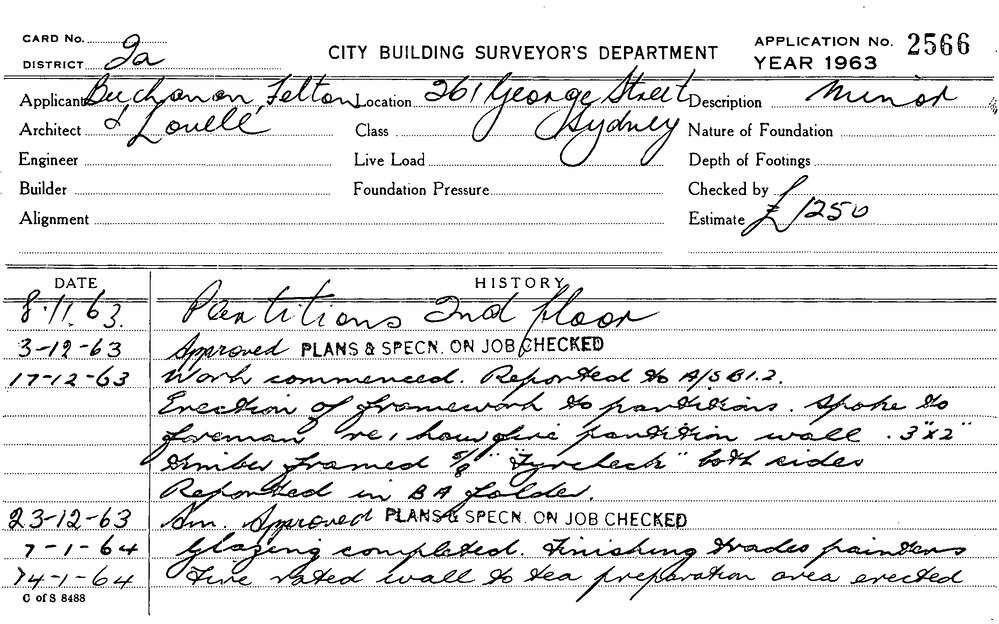 CARD No.
DISTRICT 2a
CITY BUILDING SURVEYOR'S DEPARTMENT
APPLICATION No. 2566
YEAR 1963
Applicant Buchanan, Felton
Location 261 George Street
Description Minor
Architect & Lovell
Class Sydney
Nature of Foundation
Engineer
Live Load
Depth of Footings
Builder
Foundation Pressure
Checked by
Alignment
Estimate £1250
DATE
HISTORY
8.11.63. Partitions 2nd floor
3-12-63 Approved PLANS & SPECN. ON JOB CHECKED
17-12-63 Work commenced. Reported to A/SB1.2.
Erection of framework to partitions. Spoke to
foreman re 1 hour fire partition wall. 3"x2"
timber framed 5/8" "Fyrcheck" both sides
Reported in BA folder.
23-12-63 Am. Approved PLANS & SPECN. ON JOB CHECKED
7-1-64 Glazing completed. Finishing trades painters
14-1-64 Fire rated wall to tea preparation area erected
C of S 8488